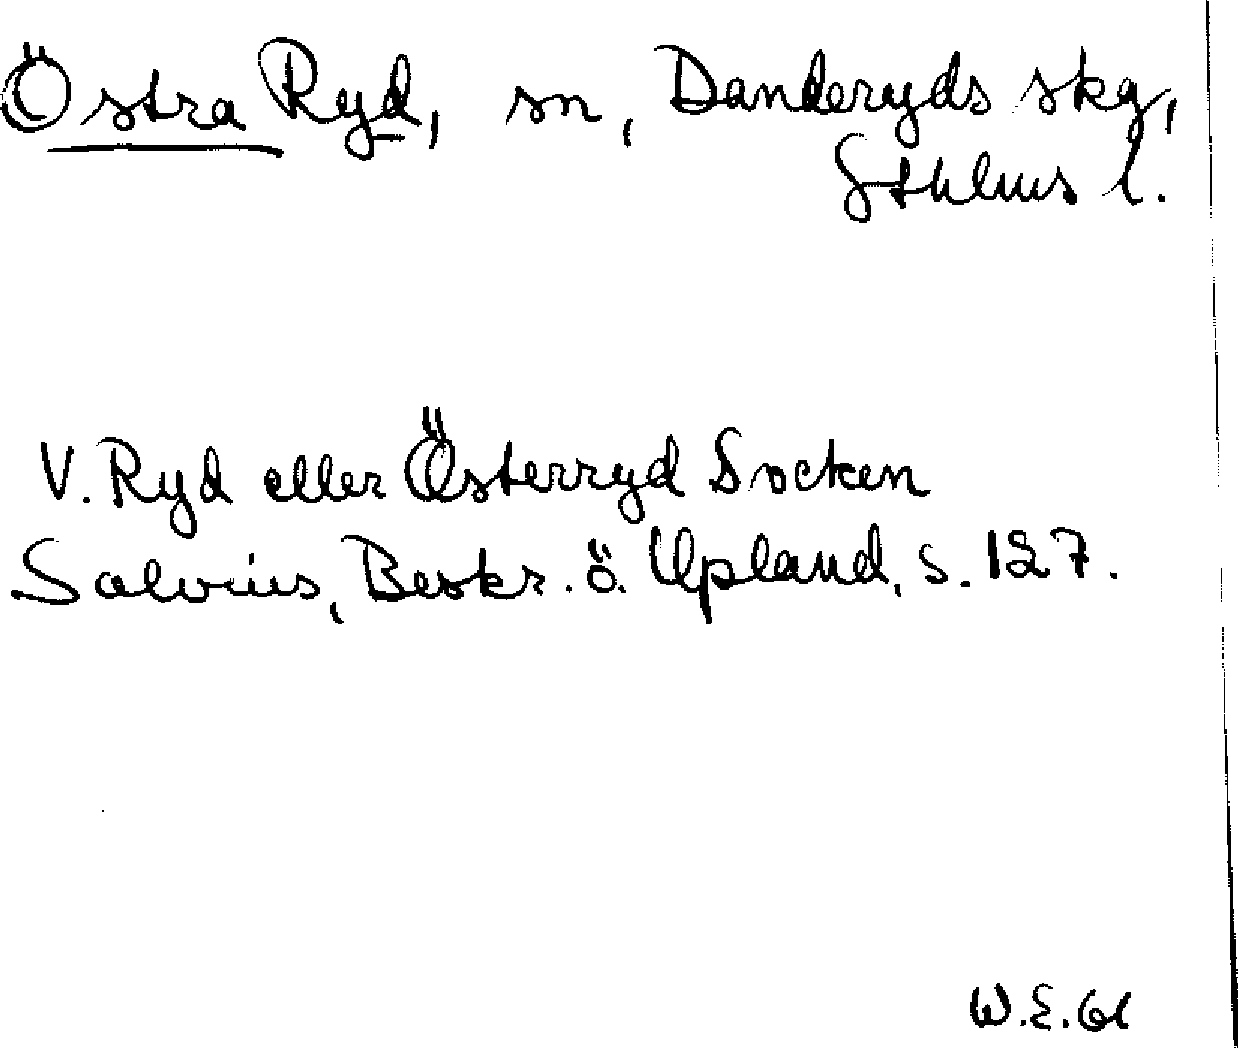 Östra Ryd, sn, Danderyds skg,
Sthlms l.
V. Ryd eller Österryd Socken
Salvius, Beskr. ö. Upland, s. 127.
W.E. 61